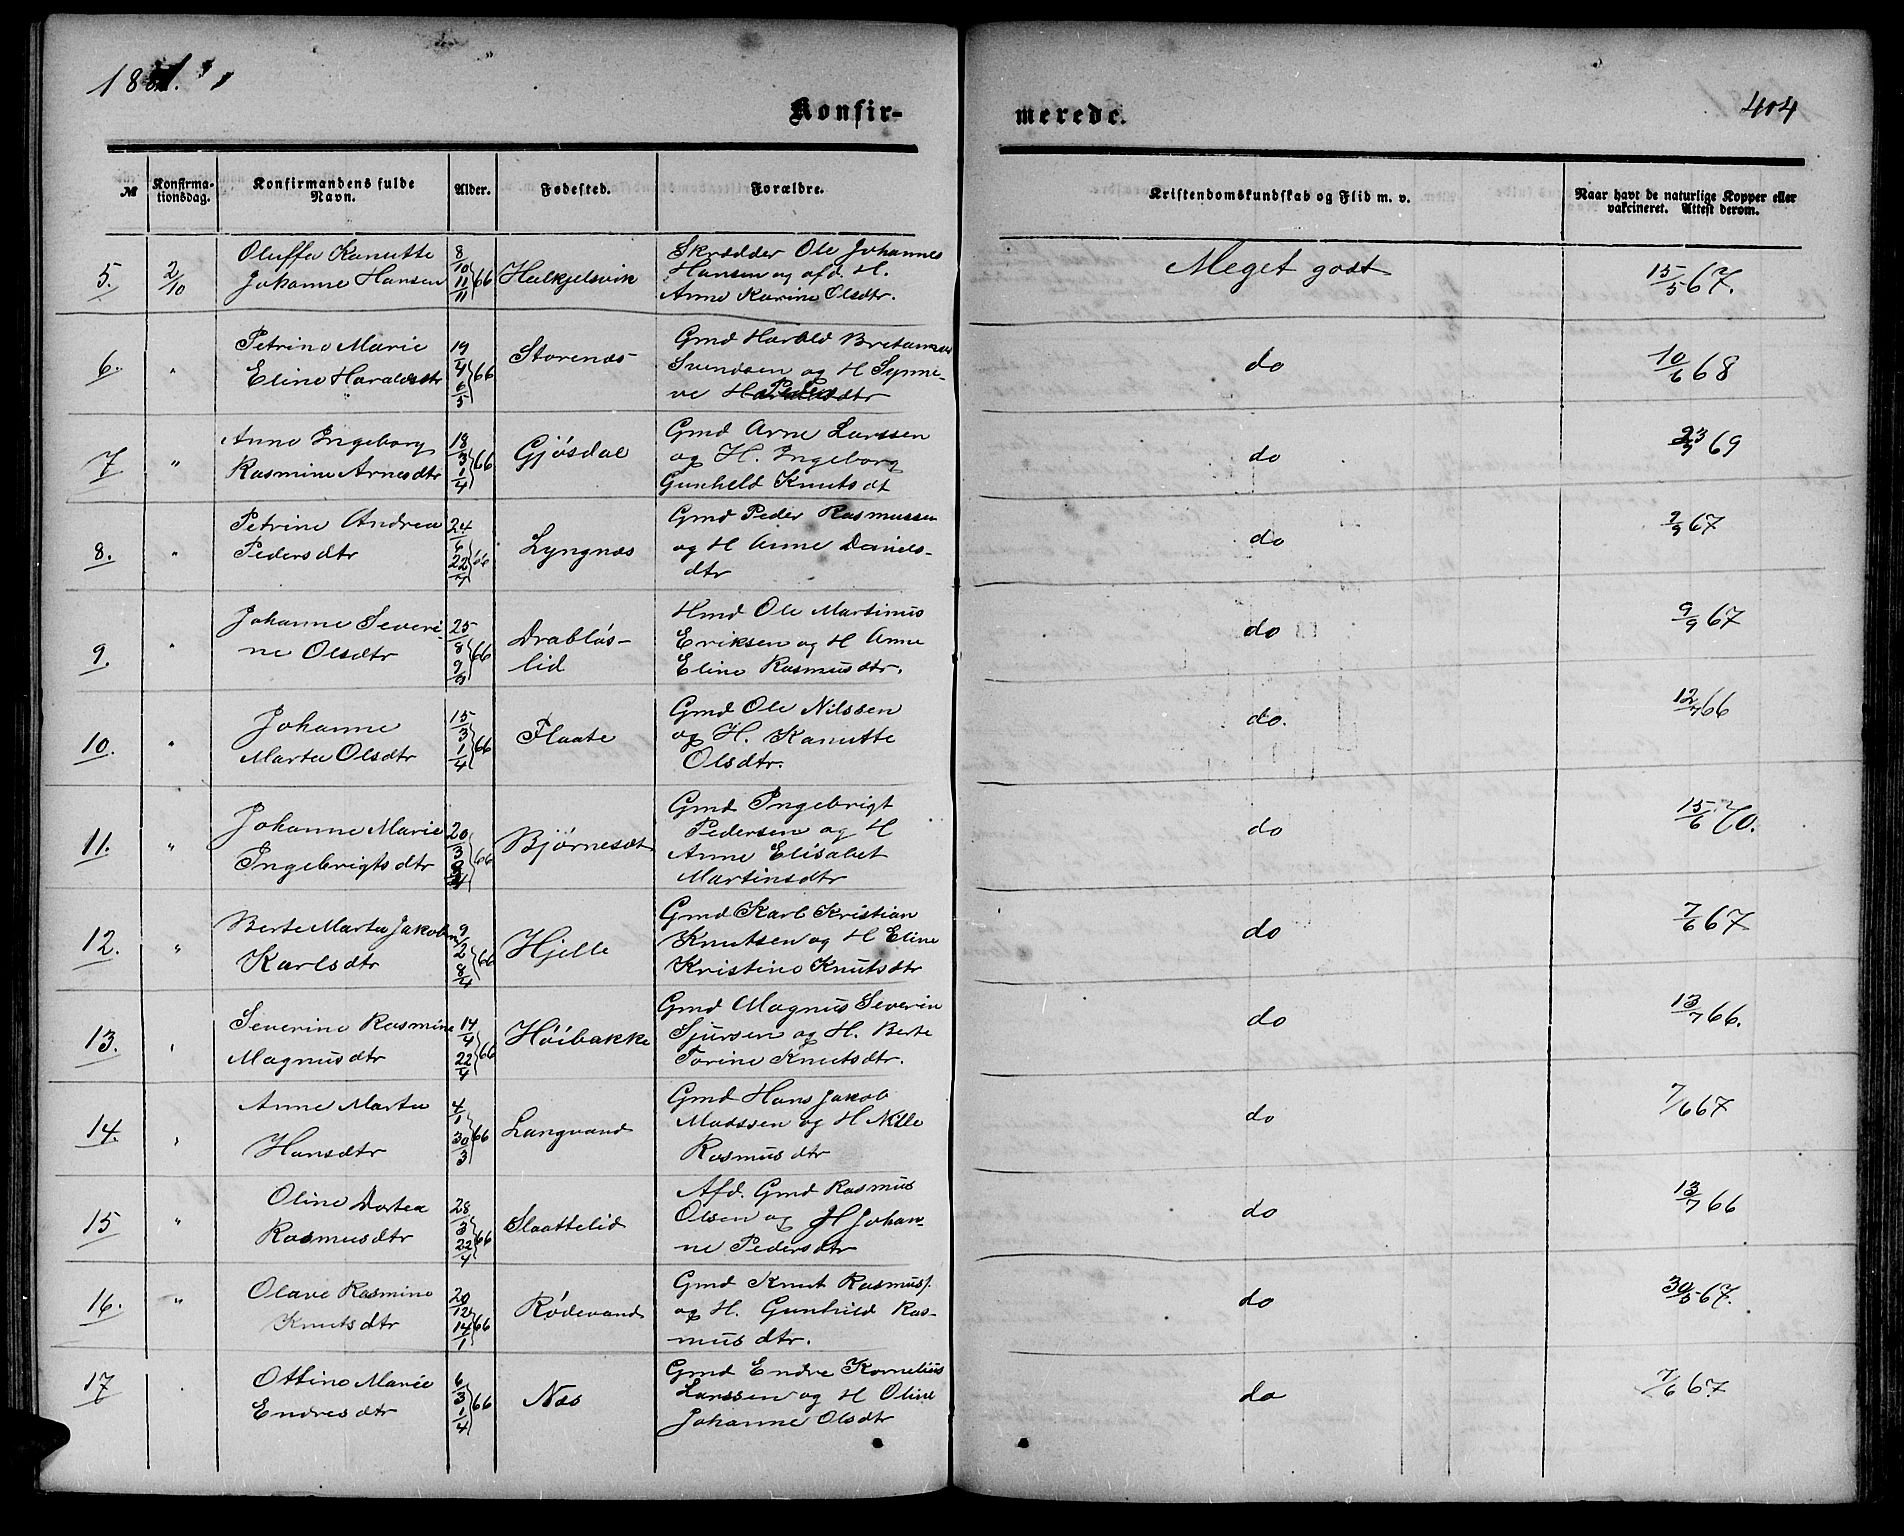 1881.
404
Konfir-
merede.
№
Konfirma-
tionsdag.
Konfirmandens fulde
Navn.
Alder.
Fødested.
Forældre.
Kristendomskundskab og Flid m. v.
Naar havt de naturlige Kopper eller
vakcineret. Attest derom.
5. 2/10
Oluffa Kanutte
Johanne Hansen
8/10 11/11 66
Halkjelsvik
Skrædder Ole Johannes
Hansen og afd. H.
Anne Karine Olsdtr.
Meget godt
15/5 67.
6. "
Petrine Marie
Eline Haraldsdtr
19/4 6/5 66
Storenæs
Gmd Harald Bretannus
Svendsen og H Synne-
ve Peders dtr
do
10/6 68
7 "
Anne Ingeborg
Rasmine Arnesdtr
18/3 1/4 66
Gjøsdal
Gmd Arne Larssen
og H. Ingeborg
Gunheld Knutsdt
do
69
8. "
Petrine Andrea
Pedersdtr
24/6 22/7 66
Lyngnæs
Gmd Peder Rasmussen
og H Anne Daniels-
dtr
do
67
9. "
Johanne Severi-
ne Olsdtr
25/8 9/9 66
Drabløs-
lid
Hmd Ole Martinus
Eriksen og H Anne
Eline Rasmusdtr.
do
9/9 67
10. "
Johanne
Marta Olsdtr
15/3 1/4 66
Flaate
Gmd Ole Nilssen
og H. Kanutte
Olsdtr.
do.
12/7 66
11. "
Johanne Marie
Ingebrigtsdtr
20/3 66
Bjørnesæt
Gmd Ingebrigt
Pedersen og H
Anne Elisabet
Martinsdtr
do
15/6 70.
12. "
Berte Marta Jakobine
Karlsdtr
9/2 8/4 66
Hjelle
Gmd Karl Kristian
Knutsen og H Eline
Kristine Knutsdtr
do
7/6 67
13. "
Severine Rasmine
Magnusdtr
14/4 22/4 66
Høibakke
Gmd Magnus Severin
Sjursen og H. Berte
Torine Knutsdtr.
do
13/7 66.
14. "
Anne Marta
Hansdtr
4/1 30/3 66
Langvand
Gmd Hans Jakob
Madssen og H Nille
Rasmusdtr
do
7/6 67
15 "
Oline Dortea
Rasmusdtr
28/3 22/4 66
Slaattelid
Afd. Gmd Rasmus
Olsen og H Johan-
ne Pedersdtr
do
13/7 66
16. "
Olave Rasmine
Knutsdtr
20/12 14/1 66
Rødevand
Gmd Knut Rasmus/.
og H. Gunhild Ras-
musdtr.
do
30/5 67.
17 "
Ottine Marie
Endresdtr
6/3 1/4 66
Næs
Gmd Endre Kornelius
Larssen og H Oline
Johanne Olsdtr
do
7/6 67